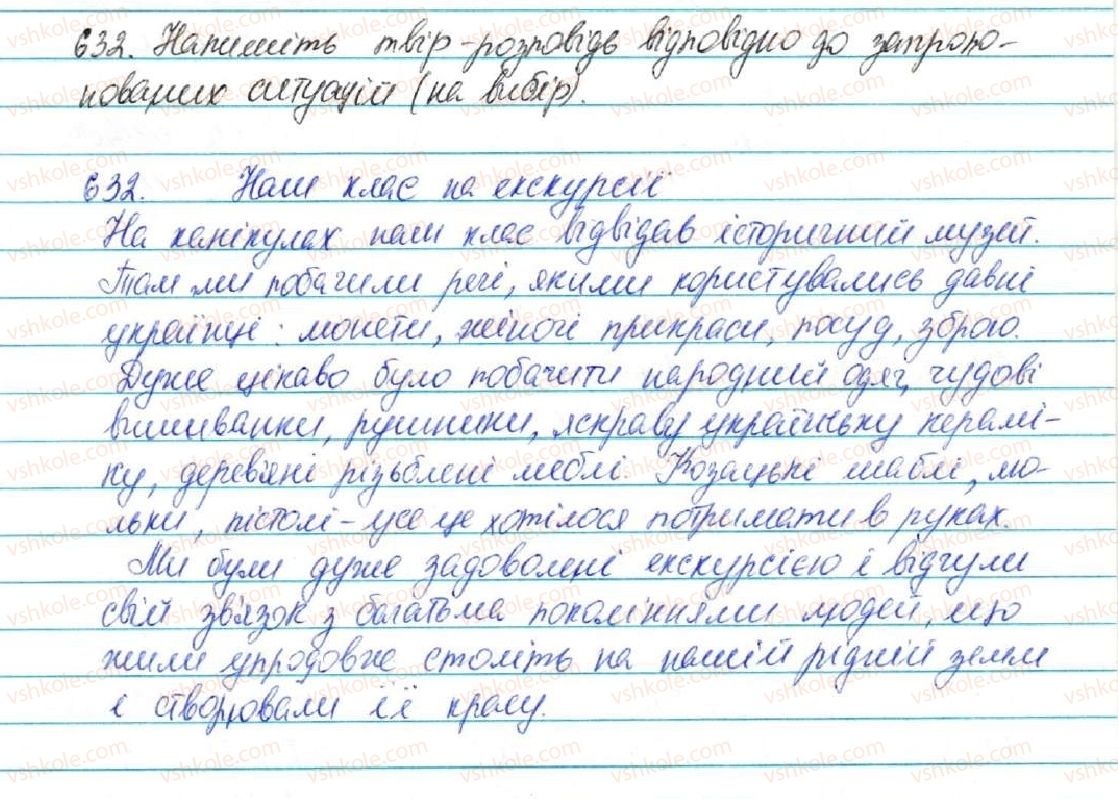 632. Напишіть твір-розповідь відповідно до запропо-
нованих ситуацій (на вибір).
632. Наш клас на екскурсії
На канікулах наш клас відвідав історичний музей.
Там ми побачили речі, якими користувались давні
українці: монети, жіночі прикраси, посуд, зброю.
Дуже цікаво було побачити народний одяг, чудові
вишиванки, рушники, яскраву українську керамі-
ку, дерев'яні різьблені меблі. Козацькі шаблі, лю-
льки, пістолі - усе це хотілося потримати в руках.
Ми були дуже задоволені екскурсією і відчули
свій зв'язок з багатьма поколіннями людей, що
жили упродовж століть на нашій рідній землі
і створювали її красу.
vshkole.com